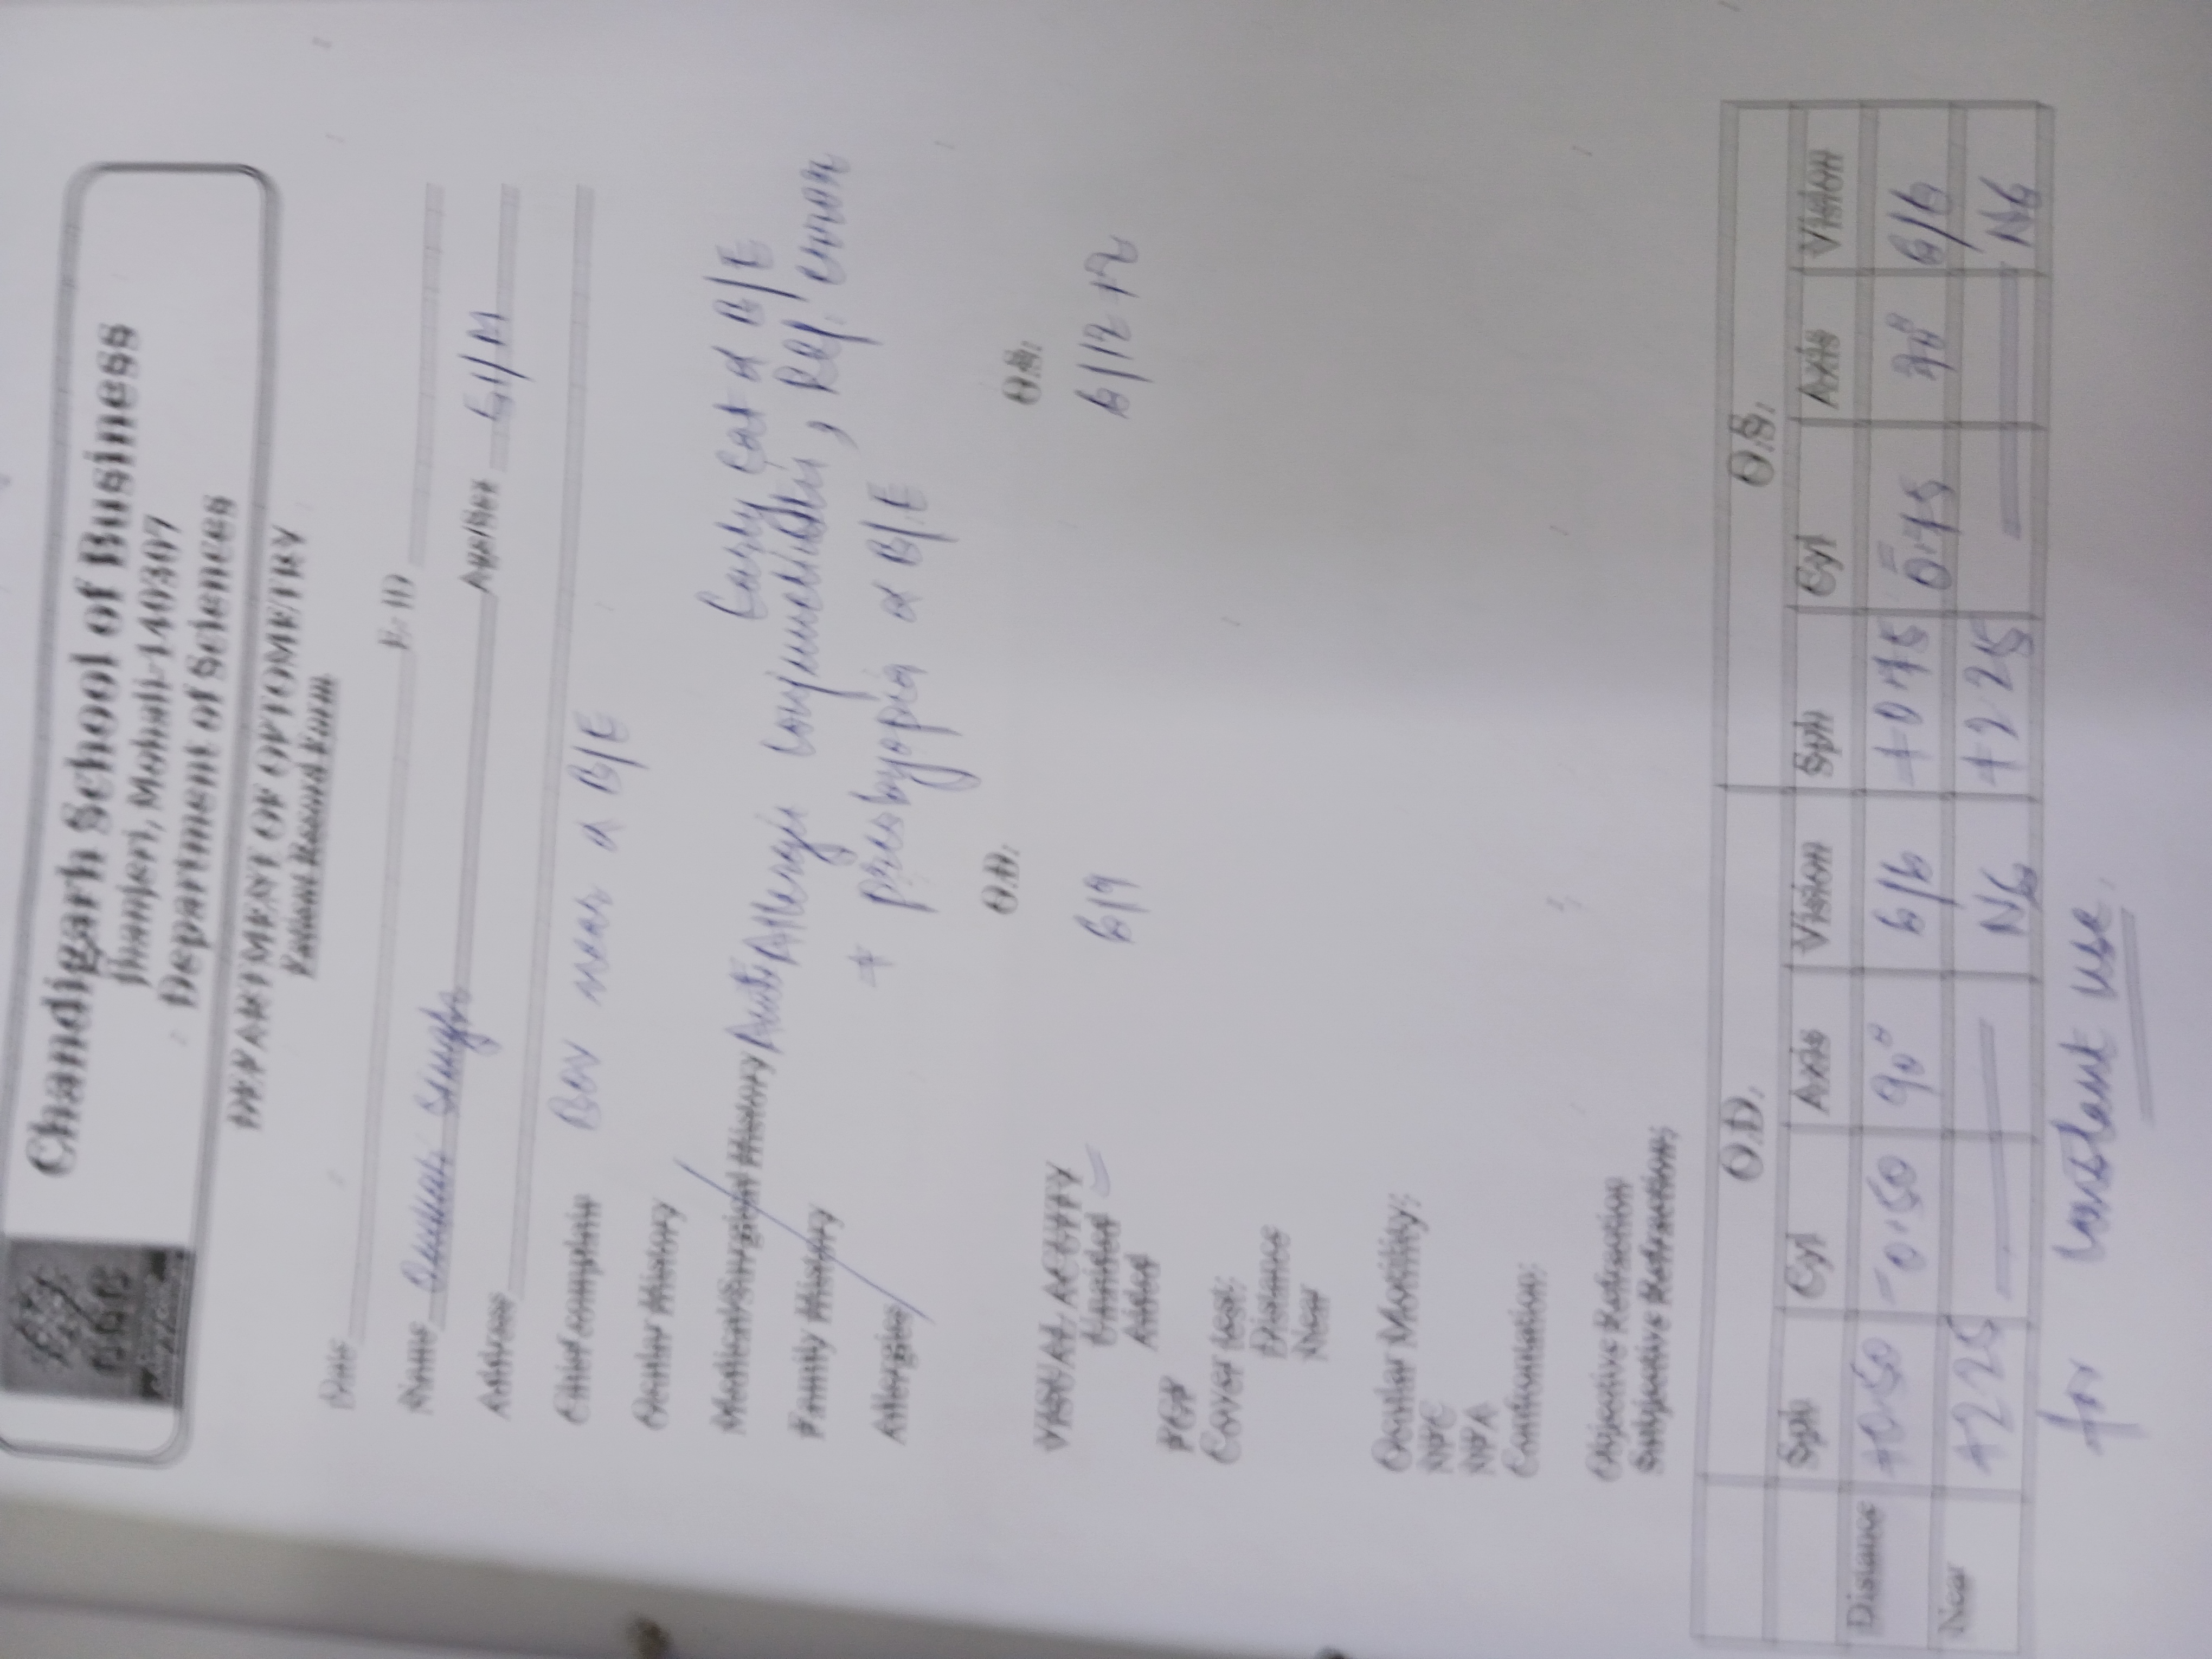 Chandigarh School of Business
Jhanjeri, Mohali-140307
Department of Sciences
DEPARTMENT OF OPTOMETRY
Patient Record Form
Date
E-ID
Name Singh Age/Sex 51/M
Address
Chief complain BOV near d B/E
Ocular History
Early Cat d B/E
Medical/Surgical History Allergic Conjunctivitis, Ref. error
Family History
+ presbyopia d B/E
Allergies
O.D. O.S.
VISUAL ACUITY
Unaided 6/9 6/12
Aided
PGP
Cover test:
Distance
Near
Ocular Motility:
NPC
NPA
Confrontation:
Objective Refraction
Subjective Refraction:
O.D. O.S.
Sph Cyl Axis Vision Sph Cyl Axis Vision
Distance +0.50 -0.50 90° 6/6 +0.75 -0.75 6/6
Near +2.25 N6 +2.25 N6
for constant use.